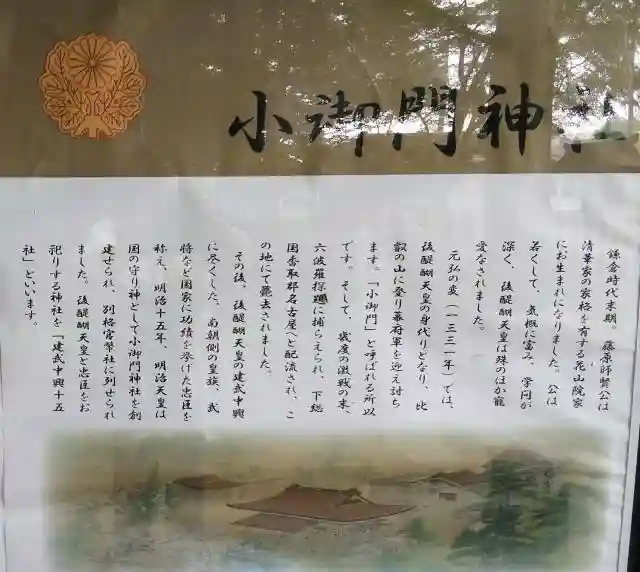 小御門神社
鎌倉時代末期 藤原師賢公は
清華家の家格を有する花山院家
にお生まれになりました。公は
若くして、気概に富み、学問が
深く、後醍醐天皇は殊のほか寵
愛なされました。
元弘の変(一三三一年)では、
後醍醐天皇の身代りとなり、比
叡の山に登り幕府軍を迎え討ち
ます。「小御門」と呼ばれる所以
です。そして、幾度の激戦の末、
六波羅探題に捕らえられ、下総
国香取郡名古屋へと配流され、こ
の地にて薨去されました。
その後、後醍醐天皇の建武中興
に尽くした、南朝側の皇族、武
将など国家に功績を挙げた忠臣を
称え、明治十五年、明治天皇は
国の守り神として小御門神社を創
建せられ、別格官幣社に列せられ
ました。後醍醐天皇と忠臣をお
祀りする神社を「建武中興十五
社」といいます。